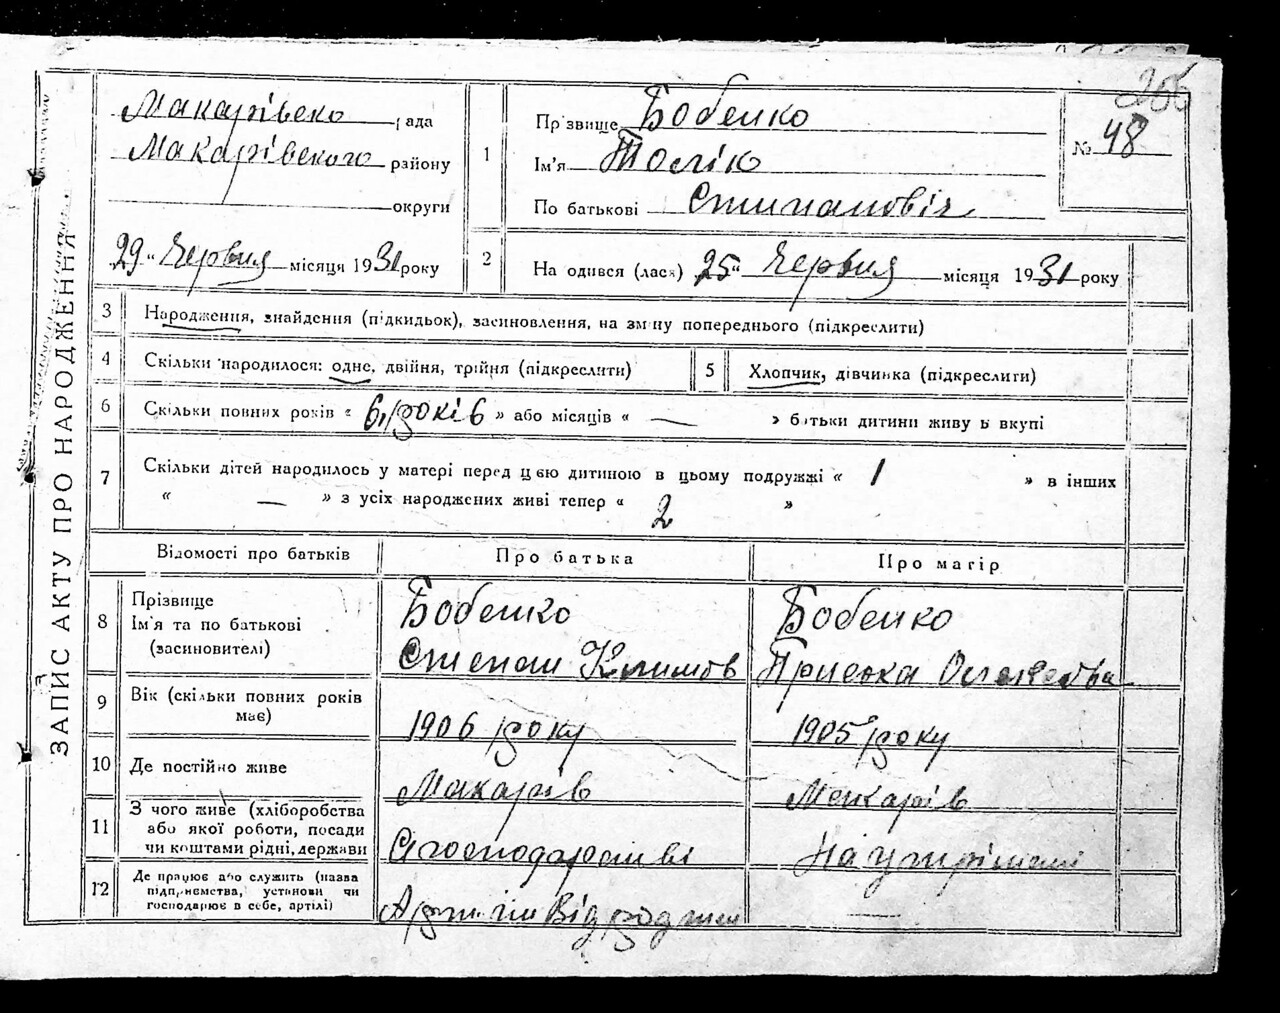 266
ЗАПИС АКТУ ПРО НАРОДЖЕННЯ
Макарівсько рада
Макарівского району
округи
29 " Червня місяця 1931 року
1
Прізвище Бобенко
Ім'я Толік
По батькові Стипановіч
№ 48
2
Народився (лася) 25 " Червня місяця 1931 року
3
Народження, знайдення (підкидьок), засиновлення, на зміну попереднього (підкреслити)
4
Скільки народилося: одне, двійня, трійня (підкреслити)
5
Хлопчик, дівчинка (підкреслити)
6
Скільки повних років « 6, років » або місяців « — » батьки дитини живуть вкупі
7
Скільки дітей народилось у матері перед цією дитиною в цьому подружжі « 1 » в інших
« — » з усіх народжених живі тепер « 2 »
Відомості про батьків
Про батька
Про матір
8
Прізвище
Ім'я та по батькові
(засиновителі)
Бобенко
Степан Климов
Бобенко
Приська
9
Вік (скільки повних років
має)
1906 року
1905 року
10
Де постійно живе
Макарів
Макарів
11
З чого живе (хліборобства
або якої роботи, посади
чи коштами рідні, держави
Сгосподарстві
На утрімані
12
Де працює або служить (назва
підприємства, установи чи
господарює в себе, артілі)
—